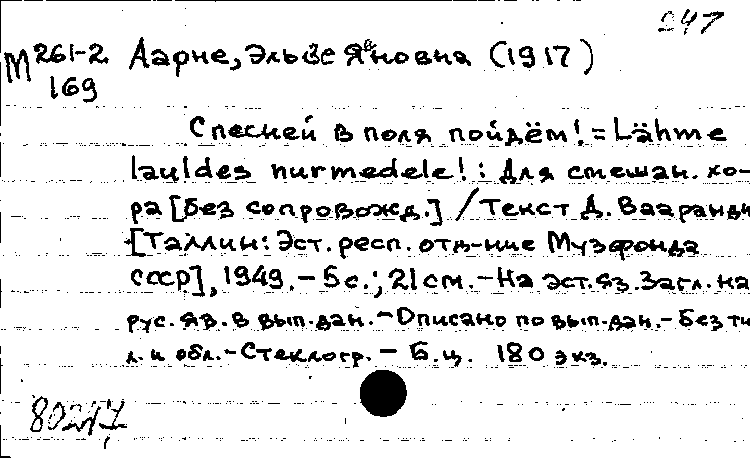 247
М 261-2 Аарне, Эльзе Яновна (1917)
169
С песней в поля пойдём! = Lähme
lauldes nurmedele! : Для смешан. хо-
ра [без сопровожд.] / Текст Д. Вааранди
[Таллин: Эст. респ. отд-ние Музфонда
СССР], 1949. - 5 с.; 21 см. - На эст. яз. Загл. на
рус. яз. в вып. дан. - Описано по вып. дан. - Без ти
л. и обл. - Стеклогр. - Б. ц. 180 экз.
80247